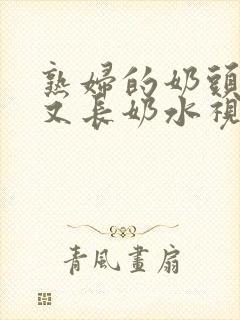 熟婦的奶頭
又長奶水視
青風畫扇